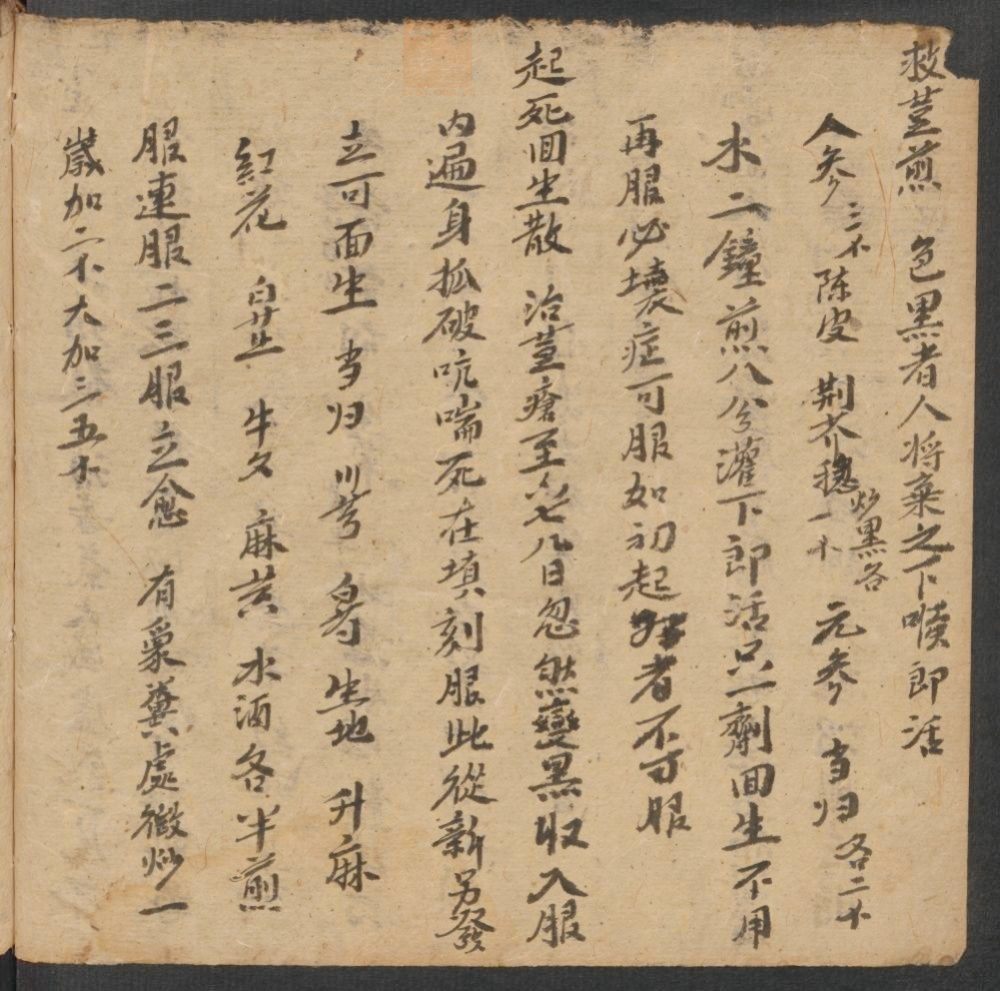 救荳煎 色黑者人將棄之下喉即活
人參三个 陈皮 荆芥穗一个 炒黑各 元參 当归各二个
水二鐘煎八分灌下即活只一劑回生不用
再服必壞症可服如初起者不可服
起死回生散 治荳瘡至六七八日忽然變黑收入服
内遍身抓破吭喘死在填刻服此從新另發
立可面生 当归 川芎 白芍 生地 升麻
紅花 白芷 牛夕 麻黄 水酒各半煎
服連服二三服立愈 有象糞處微炒一
歲加二个大加三五个